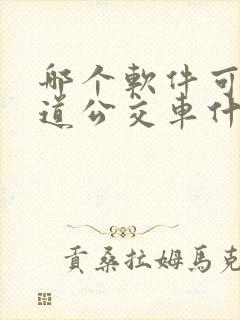 哪个軟件可
道公交車什
貢桑拉姆馬克